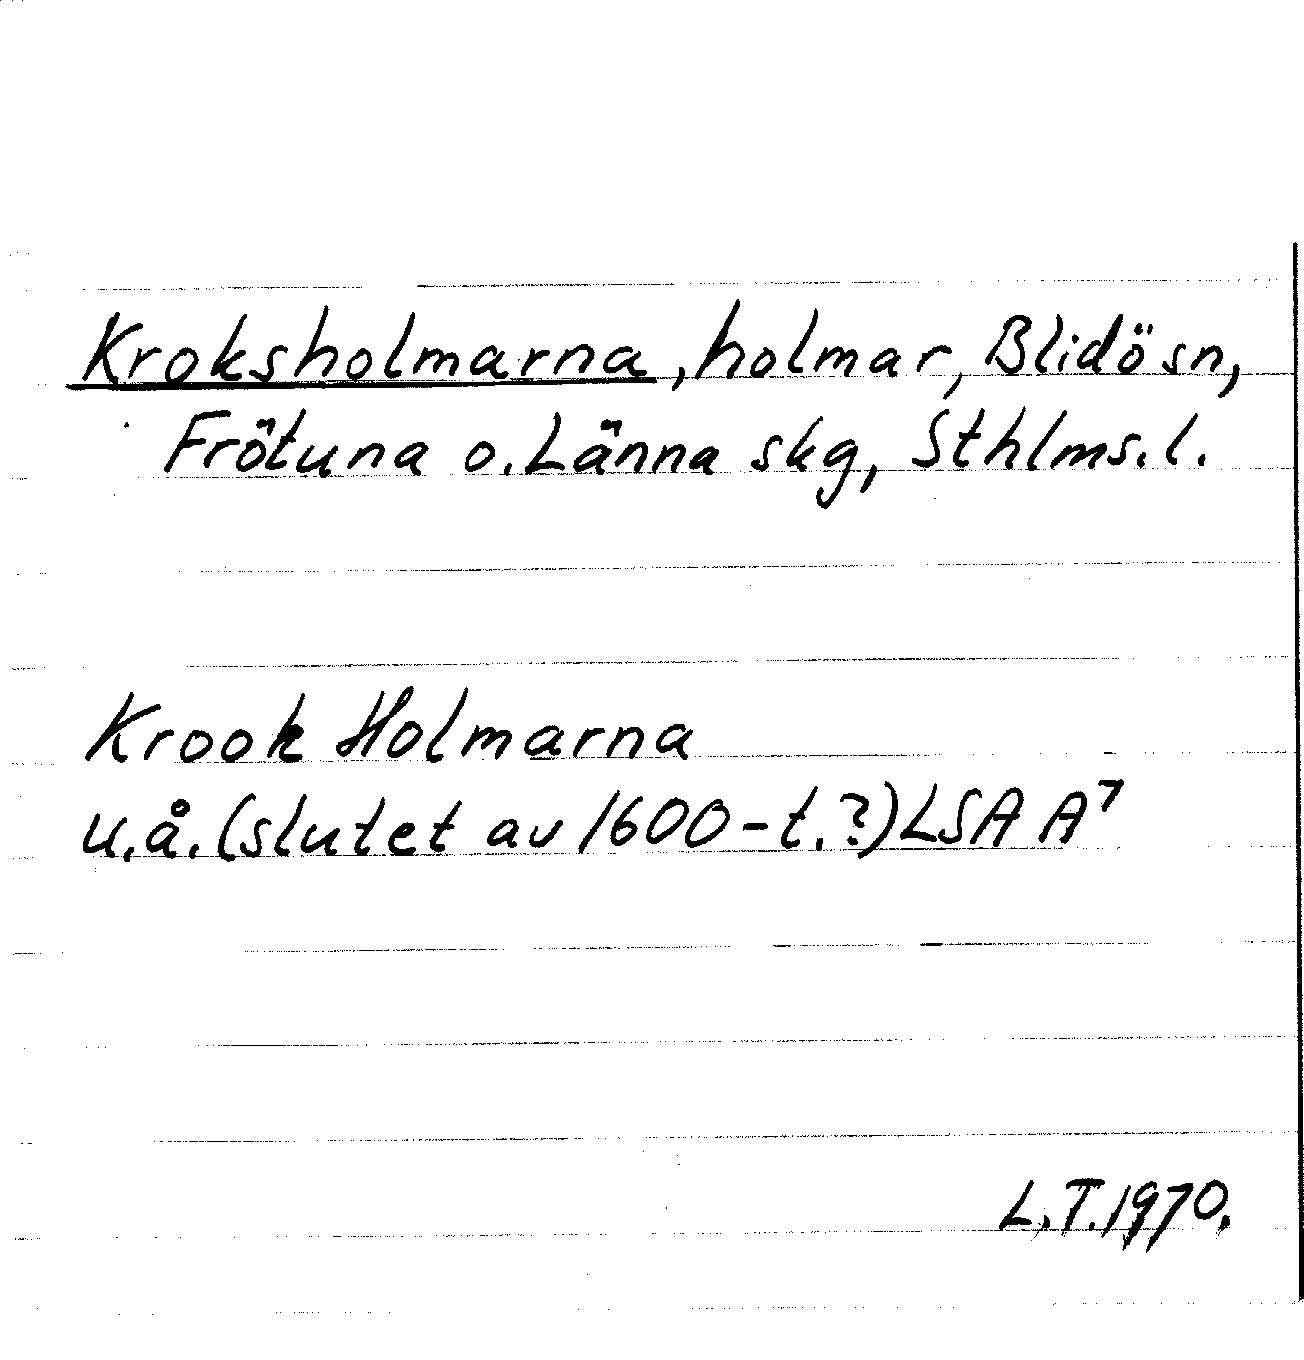 Kroksholmarna, holmar, Blidö sn,
Frötuna o. Länna skg, Sthlms. l.
Krook Holmarna
u.å. (slutet av 1600-t.?) LSA A⁷
L.T. 1970.